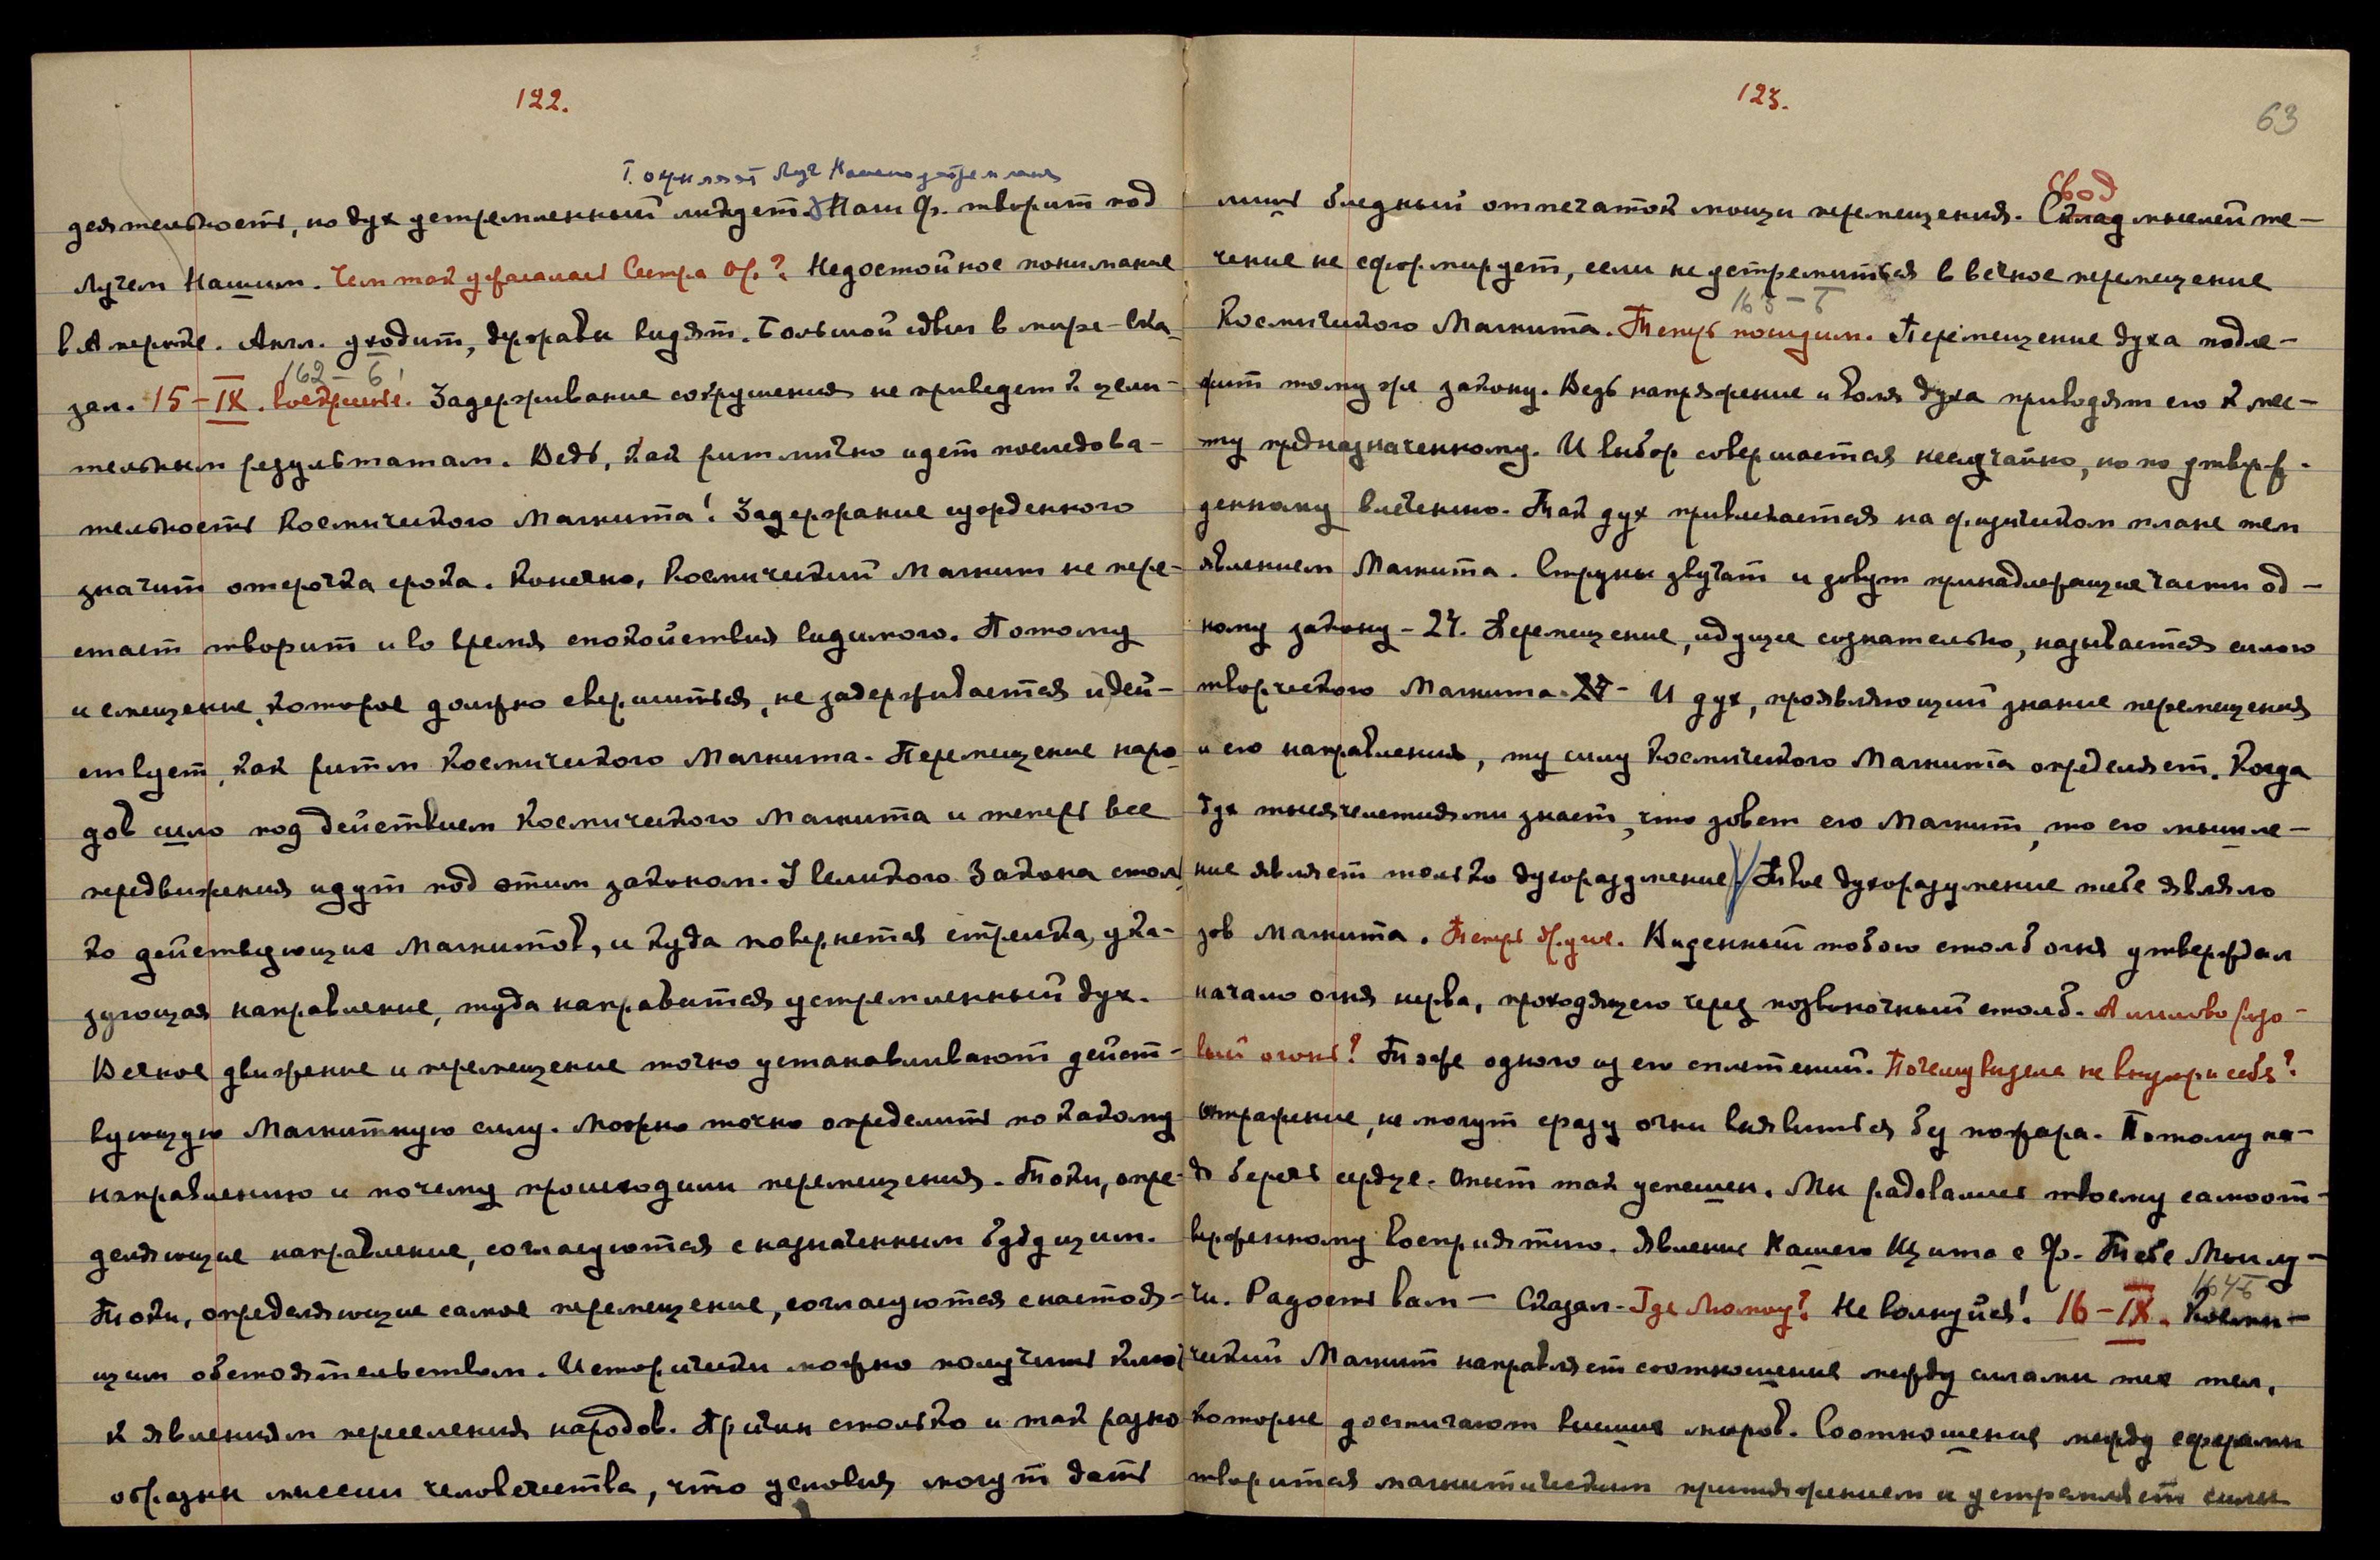 122.
деятельность, но дух устремленный ликует. Наш Ф. творит под
Лучем Нашим. Чем так ужасалась Сестра Ор.? Недостойное понимание
в Америке. Англ. уходит, держави видят. Большой сдвиг в мире – ска-
162 – б
зал. 15 – IX. Воскресенье! Задерживание сокрушения не приведет к цели-
тельным результатам. Ведь, как ритмично идет последова-
тельность Космического Магнита! Задержание
значит отсрочка срока. Конечно, Космический Магнит не пере-
стает творить и во время спокойствия видимого. Потому
и смещение, которое должно свершиться, не задерживается и дей-
ствует, как ритм Космического Магнита. Перемещение наро-
дов шло под действием Космического Магнита и теперь все
передвижения идут под этим законом. У великого Закона столь-
ко действующих Магнитов, и куда повернется стрелка, ука-
зующая направление, туда направится устремленный дух.
Вечное движение и перемещение точно устанавливают дейст-
вующую Магнитную силу. Можно точно определить по какому
направлению и почему происходили перемещения. Токи, опре-
деляющие направление, согласуются с назначенным будущим.
Токи, определяющие самое перемещение, согласуются с настоя-
щим обстоятельством. Исторически можно получить ключ
к явлениям переселения народов. Причин столько и так разно
образны миссии человечества, что условия могут дать
123.
63
свод
лишь бледный отпечаток мощи перемещения. Склад мыслей те-
чение не сформирует, если не устремиться в вечное перемещение
163 – б
Космического Магнита. Теперь посидим. Перемещение духа подле-
жит тому же закону. Ведь напряжение и воля духа приводят его к мес-
ту предназначенному. И выбор совершается неслучайно, но по утверж-
денному влечению. Так дух привлекается на физическом плане тем
явлением Магнита. Струны звучат и зовут принадлежащие части од-
ному закону – 24. Перемещение, идущее сознательно, называется силою
творческого Магнита. – И дух, проявляющий знание перемещения
и его направления, ту силу Космического Магнита определяет. Когда
дух тысячелетиями знает, что зовет его Магнит, то его мышле-
ние являет только духоразумение. Твое духоразумение тебе являло
зов Магнита. Теперь другие. Виденный тобою столб огня утверждал
начало огня нерва, проходящего через позвоночный столб. А лилово розо-
вый огонь? Тоже одного из его сплетений. Почему видела не внутри себя?
Отражение, не могут сразу огни выявиться без пожара. Потому на-
до беречь сердце. Опыт так успешен. Мы радовались твоему самоот-
верженному восприятию. Явление Нашего Щита с Ф. Тебе Мои лу-
164 б
чи. Радость вам – Сказал. Где Молюу? Не волнуйся! 16 – IX. Косми-
ческий Магнит направляет соотношение между силами тех тел,
которые достигают высших миров. Соотношение между сферами
творится магнитическим притяжением и устремляет силы